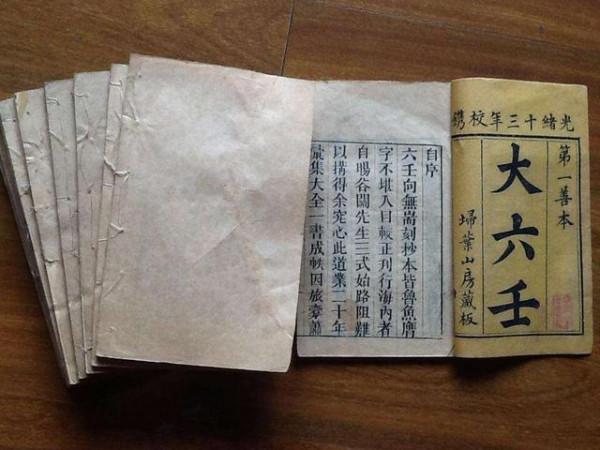 光緒十三年校鐫
第一善本
大六壬
埽葉山房藏板
自序
六壬向無耑刻抄本皆魯魚贗
字不堪入目較正刊行海內者
自暘谷先生三式始路阻難
以搆得余究心此道業二十年
彙集大全一書成帙因旅橐蕭